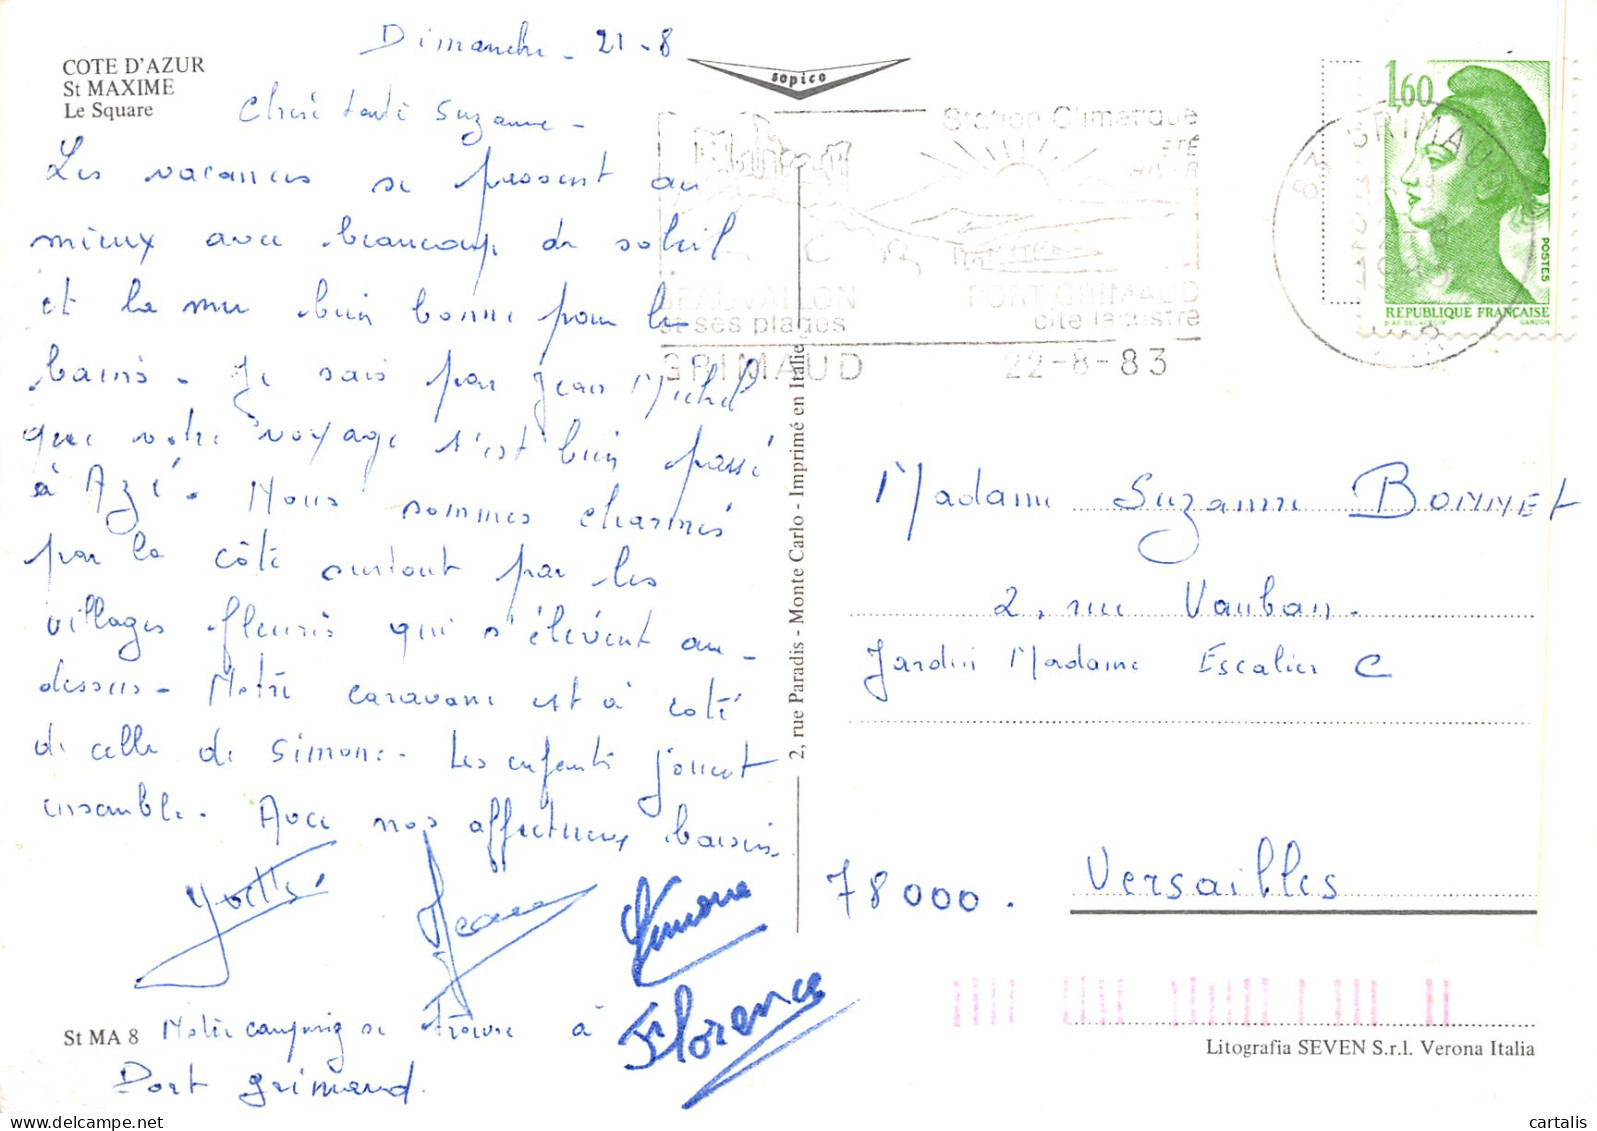 COTE D'AZUR
St MAXIME
Le Square
Dimanche - 21 - 8
Chère tante Suzanne -
Les vacances se passent au
mieux avec beaucoup de soleil
et la mer bien bonne pour les
bains - Je sais par Jean Michel
que votre voyage s'est bien passé
à Azé. Nous sommes charmés
par la côte surtout par les
villages fleuris qui s'élèvent au-
dessus - Notre caravane est à côté
de celle de Simone. Les enfants jouent
ensemble. Avec nos affectueux baisers
Yvette
Jean
Simone
Florence
St MA 8
Notre camping se trouve à
Port Grimaud.
sopico
2, rue Paradis - Monte Carlo - Imprimé en Italie
Station Climatique
ETÉ
HIVER
BEAUVALLON
et ses plages
PORT GRIMAUD
cité lacustre
GRIMAUD
22-8-83
83 GRIMAUD
22-8
1983
VAR
1,60
POSTES
REPUBLIQUE FRANÇAISE
D'AP. DELACROIX
GANDON
Madame Suzanne BONNET
2, rue Vauban.
Jardin Madame Escalier C
78000. Versailles
Litografia SEVEN S.r.l. Verona Italia
cartalis